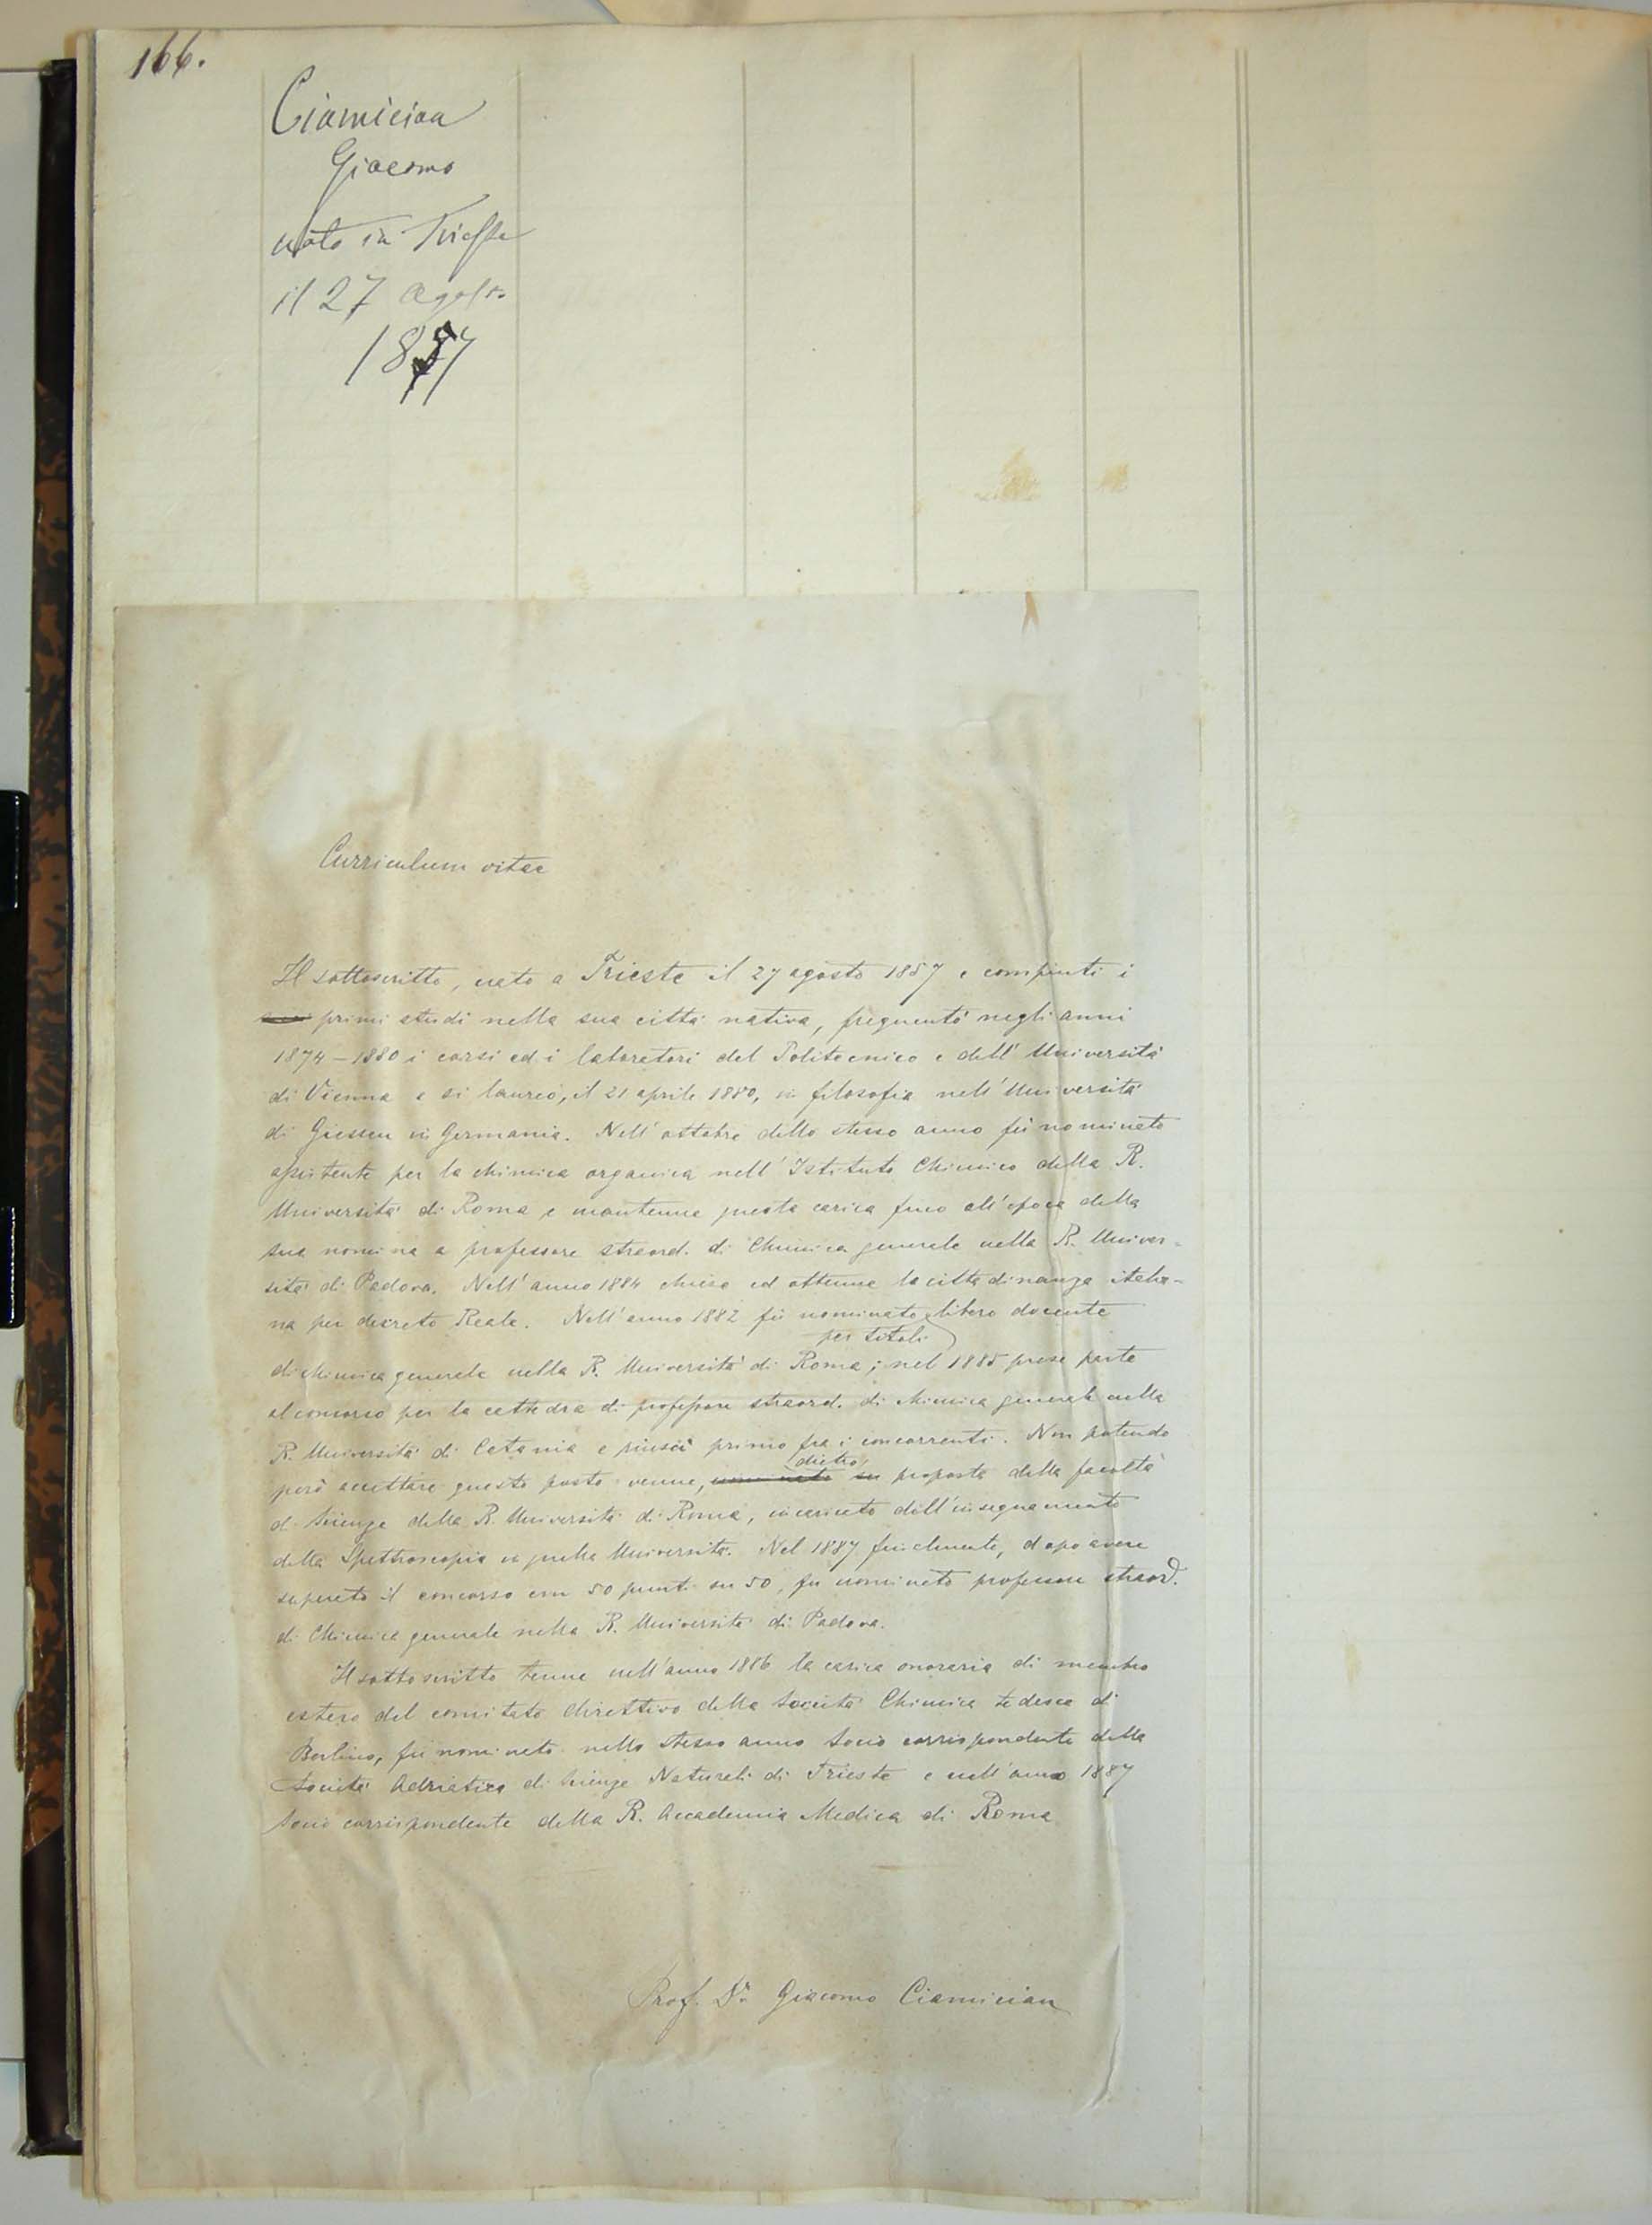 166.
Ciamician
Giacomo
nato in Trieste
il 27 agosto
1857
Curriculum vitae
Il sottoscritto, nato a Trieste il 27 agosto 1857 e compiuti i
primi studi nella sua città nativa, frequentò negli anni
1874–1880 i corsi ed i laboratori del Politecnico e dell' Università
di Vienna e si laureò, il 21 aprile 1880, in filosofia nell' Università
di Giessen in Germania. Nell' ottobre dello stesso anno fù nominato
assistente per la chimica organica nell' Istituto Chimico della R.
Università di Roma e mantenne questa carica fino all' epoca della
sua nomina a professore straord. di Chimica generale nella R. Univer-
sità di Padova. Nell' anno 1884 chiese ed ottenne la cittadinanza italia-
na per decreto Reale. Nell' anno 1882 fù nominato libero docente
per titoli
di chimica generale nella R. Università di Roma; nel 1885 prese parte
al concorso per la cattedra di professore straord. di chimica generale nella
R. Università di Catania e riuscì primo fra i concorrenti. Non potendo
però accettare questo posto venne, nominato su proposta della facoltà
dietro
di Scienze della R. Università di Roma, incaricato dell' insegnamento
della Spettroscopia in quella Università. Nel 1887 finalmente, dopo avere
superato il concorso con 50 punti su 50, fu nominato professore straord.
di Chimica generale nella R. Università di Padova.
Il sottoscritto tenne nell' anno 1886 la carica onoraria di membro
estero del comitato direttivo della Società Chimica tedesca di
Berlino, fù nominato nello stesso anno Socio corrispondente della
Società Adriatica di Scienze Naturali di Trieste e nell' anno 1887
Socio corrispondente della R. Accademia Medica di Roma
Prof. Dr. Giacomo Ciamician